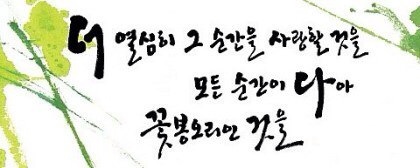 더 열심히 그 순간을 사랑할 것을
모든 순간이 다아
꽃봉오리인 것을